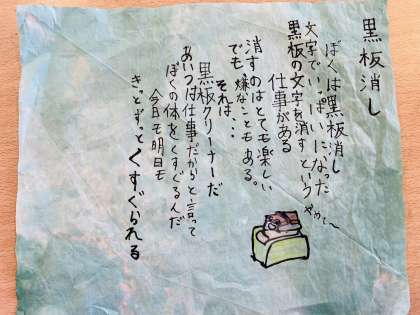 黒板消し
ぼくは黒板消し
文字でいっぱいになった
黒板の文字を消すという
仕事がある
消すのはとても楽しい
でも嫌なこともある。
それは・・・
黒板クリーナーだ
あいつは仕事だからと言って
ぼくの体をくすぐるんだ
今日も明日も
きっとずっとくすぐられる
やめて〜